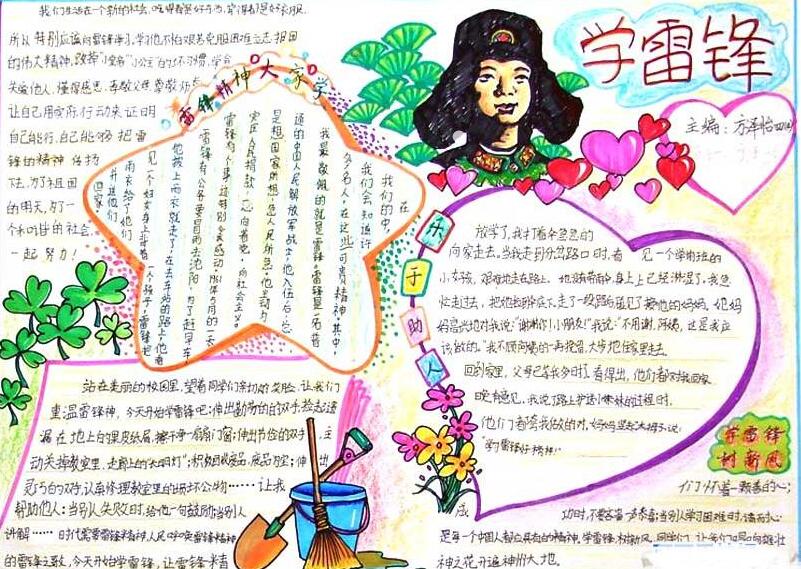 学雷锋
主编：方泽怡 四
我们生活在一个新的社会，吃得都是好东西，穿得都是好衣服，
所以特别应该向雷锋学习，学习他不怕艰苦克服困难立志报国
的伟大精神，改掉
关爱他人，懂得感恩
让自己用实际行动来证明
自己能行，自己能够把雷
锋的精神传扬
下去，为了祖国
的明天，为了一
个和谐的社会
一起努力！
雷锋精神大家学
在
我们的中，
我们会知道许
多名人，在这些可贵精神，其中，
我最敬佩的就是雷锋，雷锋是一名普
通的中国人民解放军战士，他入伍后，总
是想国家所想，急人民所急，他主动为
灾区人民捐款
雷锋有个事迹特别令我感动
雷锋有公务要冒雨去沈阳，为了赶早车，
他披上雨衣就走了，在去车站的路上，他看
见一个妇女身上背着一个孩子，雷锋把
雨衣给了她们
并送她们
回家
乐于助人
放学了，我打着伞急急的
向家走去。当我走到分岔路口时，看见一个学前班的
小女孩，艰难地走在路上。她没带雨伞，身上已经淋湿了。我急
忙走过去，把他拉到伞底下，走了一段路，
妈妈高兴地对我说：“谢谢你！小朋友！”我说：“不用谢，阿姨，这是我应
该做的。”我不顾阿姨的再挽留，大步把住家里走去。
回到家里，父母已等我多时
晚有意见，我说了路上护送小妹妹的过程时，
他们都夸我做的对，
“学雷锋好精神！”
学雷锋
树新风
站在美丽的校园里，望着同学们亲切的笑脸，让我们
重温雷锋精神，今天开始学雷锋吧：伸出勤劳的双手，捡起洒
漏在地上的果皮纸屑，擦干净一扇扇门窗；伸出节俭的双手，主
动关掉教室里、走廊上的“长明灯”；积极回收废品，废品为宝；伸出
灵巧的双手，认真修理教室里的损坏公物……让我
帮助他人：当别人失败时，给他一句鼓励
讲解……时代需要雷锋精神，人民呼唤雷锋精神
的雷锋之歌，今天开始学雷锋，让雷锋精
们怀着一颗善的心：
成
功时，不要吝啬一声恭喜；当别人学习困难时，请耐心
是每个中国人都应具有的精神。学雷锋，树新风，同学们，让我们唱响雄壮
神之花开遍神州大地。